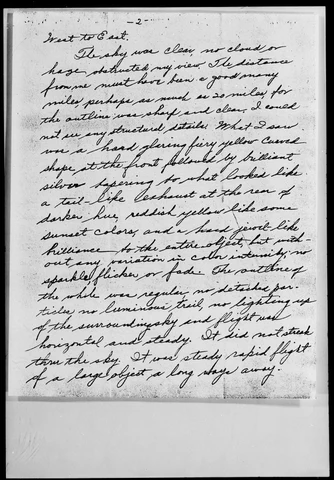 - 2 -
West to East.
The sky was clear, no cloud or
haze obstructed my view. The distance
from me must have been a good many
miles perhaps as much as 20 miles, for
the outline was sharp and clear, I could
not see any structural details. What I saw
was a hard glaring fiery yellow curved
shape at the front followed by brilliant
silver tapering to what looked like
a tail-like exhaust at the rear of
darker hue, reddish yellow like some
sunset colors, and a hard jewel-like
brilliance to the entire object, but with-
out any variation in color intensity, no
sparkle, flicker or fade. The outline of
the whole was regular, no detached par-
ticles, no luminous trail, no lighting up
of the surrounding sky and flight was
horizontal and steady. It did not streak
thru the sky. It was steady rapid flight
of a large object a long ways away.